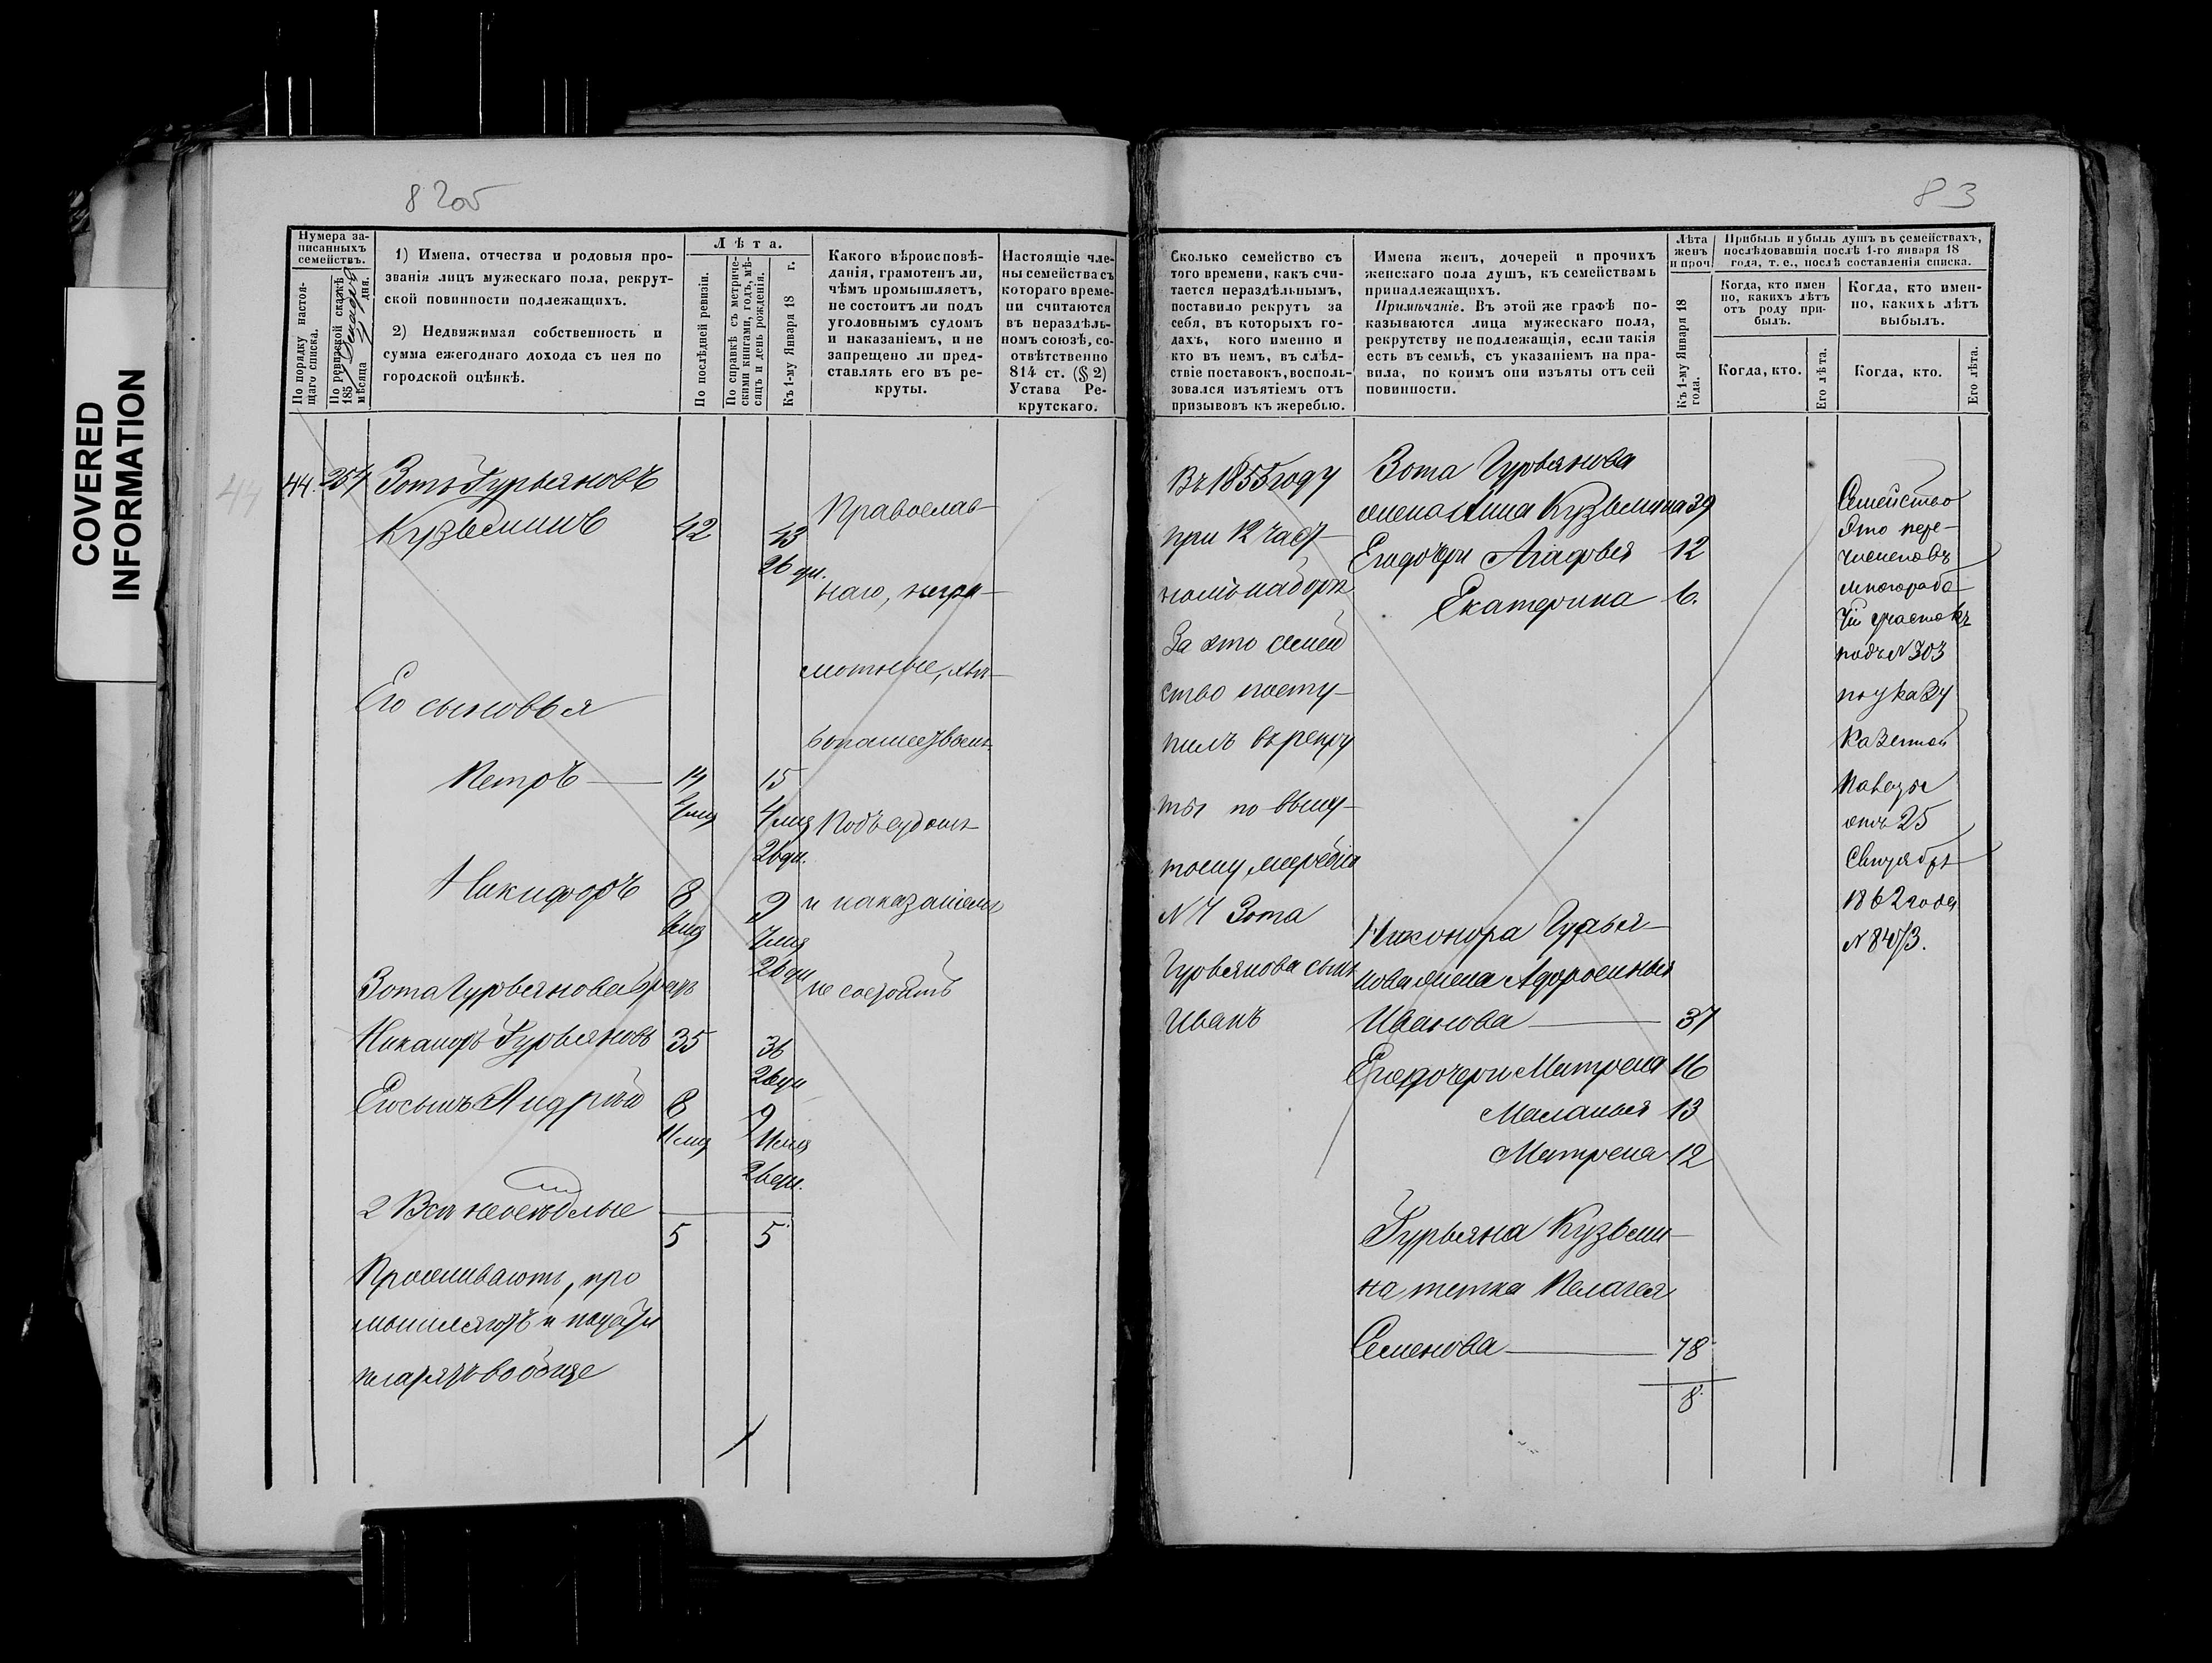 8 205
83
COVERED
INFORMATION
Нумера за-
писанныхъ
семействъ.
По порядку настоя-
щаго списка.
По ревизской сказкѣ
185
мѣсяца дня.
1) Имена, отчества и родовыя про-
званія лицъ мужескаго пола, рекрут-
ской повинности подлежащихъ.
2) Недвижимая собственность и
сумма ежегоднаго дохода съ нея по
городской оцѣнкѣ.
Лѣта.
По послѣдней ревизіи.
По справкѣ съ метриче-
скими книгами, годъ, мѣ-
сяцъ и день рожденія.
Къ 1-му Января 18 г.
Какого вѣроисповѣ-
данія, грамотенъ ли,
чѣмъ промышляетъ,
не состоитъ ли подъ
уголовнымъ судомъ
и наказаніемъ, и не
запрещено ли пред-
ставлять его въ ре-
круты.
Настоящіе чле-
ны семейства съ
котораго време-
ни считаются
въ нераздѣль-
номъ союзѣ, со-
отвѣтственно
814 ст. (§ 2)
Устава Ре-
крутскаго.
44
44. 257 Зотъ Гурьяновъ
Кузьминъ 42 43
26 дн.
Православ-
наго, негра-
мотные, хлѣ-
бопашествомъ
Подъ судомъ
и наказаніемъ
не состоятъ
Его сыновья
Петръ 14 15
4 мц 26 дн.
Никифоръ 8 9
26 дн
Зота Гурьянова братъ
Никаноръ Гурьяновъ 35 36
26 дн
Его сынъ Андрей 8 9
11 мц 11 мц
26 дн.
2 Всѣ неосѣдлые
5 5
Проживаютъ, про
мышляютъ и подати
платятъ вообще
Сколько семейство съ
того времени, какъ счи-
тается нераздѣльнымъ,
поставило рекрутъ за
себя, въ которыхъ го-
дахъ, кого именно и
кто въ немъ, въ слѣд-
ствіе поставокъ, восполь-
зовался изъятіемъ отъ
призывовъ къ жеребью.
Имена женъ, дочерей и прочихъ
женскаго пола душъ, къ семействамъ
принадлежащихъ.
Примѣчаніе. Въ этой же графѣ по-
казываются лица мужескаго пола,
рекрутству не подлежащія, если такія
есть въ семьѣ, съ указаніемъ на пра-
вила, по коимъ они изъяты отъ сей
повинности.
Лѣта
женъ
и проч.
Къ 1-му Января 18
года.
Прибыль и убыль душъ въ семействахъ,
послѣдовавшія послѣ 1-го января 18
года, т. е., послѣ составленія списка.
Когда, кто имен
но, какихъ лѣтъ
отъ роду при-
былъ.
Когда, кто имен-
но, какихъ лѣтъ
выбылъ.
Когда, кто.
Его лѣта.
Когда, кто.
Его лѣта.
Въ 1855 году
при 12 част-
номъ наборѣ
За это семей
ство посту-
пилъ въ рекру
ты по выну-
тому жеребію
N 7 Зота
Гурьянова сынъ
Иванъ
Зота Гурьянова
жена Анна Кузьмина 39
Его дочери Агафья 12
Екатерина 6.
Никонора Гурья-
нова жена Афросинья
Иванова 37
Его дочери Матрена 16
Меланья 13
Матрена 12
Гурьяна Кузьми-
на тетка Пелагея
Семенова 78
8
Семейство
Это пере-
численовъ
многорабо
чій участокъ
подъ N 303
по указу
Казенной
Палаты
отъ 25
Сентября
1862 года
N 8473.